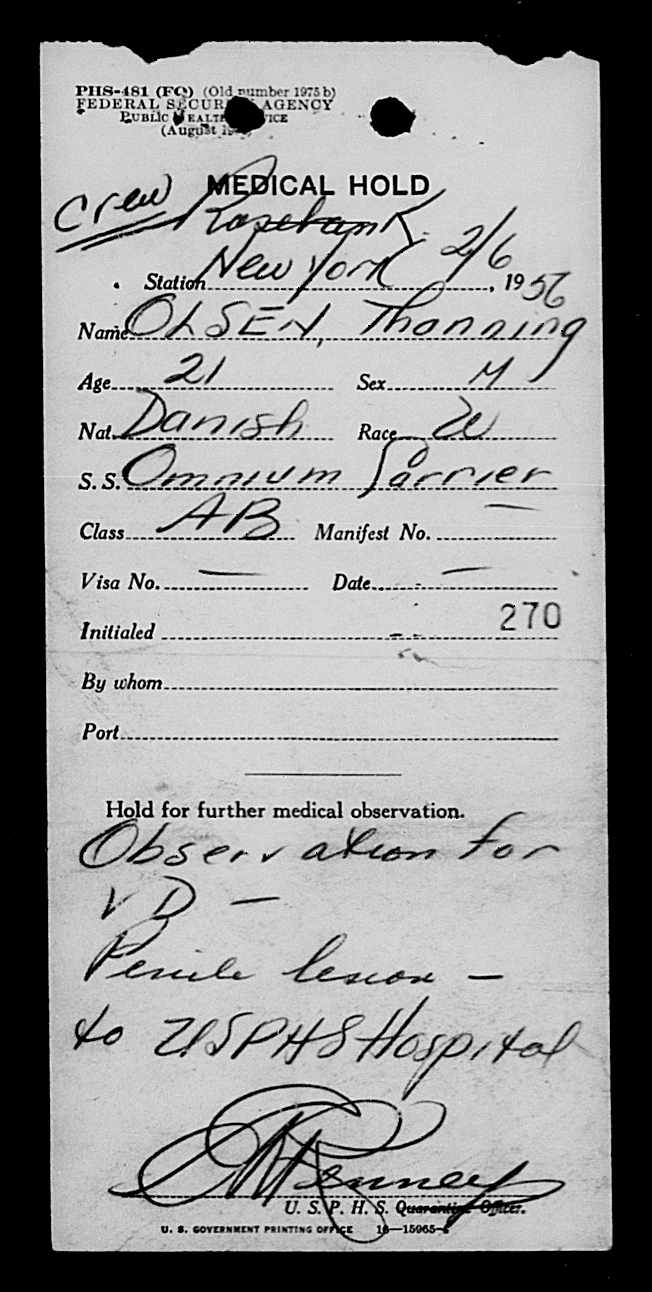 PHS-481 (FQ) (Old number 1975 b)
FEDERAL SECURITY AGENCY
PUBLIC HEALTH SERVICE
(August
MEDICAL HOLD
Crew Rosebank
New York 2/6
Station , 1956
Name OLSEN, Thonning
Age 21 Sex M
Nat. Danish Race W
S. S. Omnium Carrier
Class AB Manifest No. —
Visa No. — Date —
Initialed 270
By whom
Port
Hold for further medical observation.
Observation for
VD —
Penile lesion —
to USPHS Hospital
U. S. P. H. S. Quarantine Officer.
U. S. GOVERNMENT PRINTING OFFICE 16—15965-